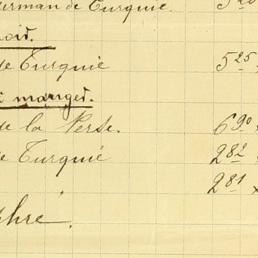 de Turquie.
noir.
de Turquie 5 25
à manger.
de la Perse. 6 90
de Turquie 2 82
2 81
phré.